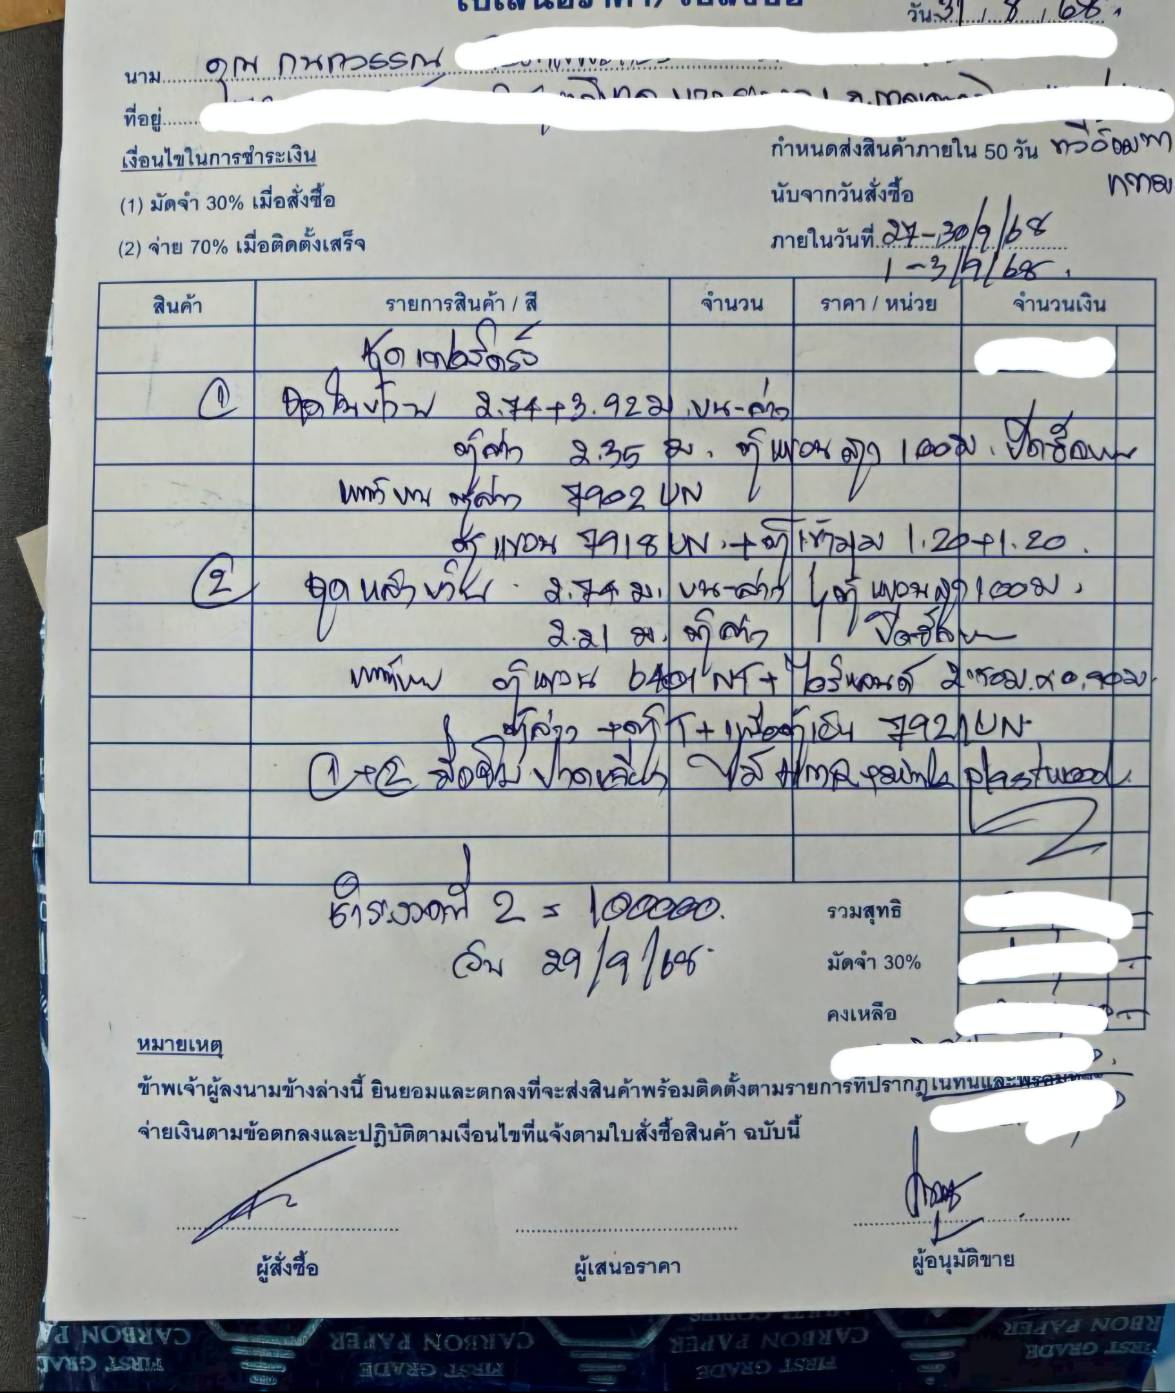 ใบเสนอราคา / ใบสั่งซื้อ
วันที่ 31 / 8 / 68
นาม คุณ กนกวรรณ
ที่อยู่
เงื่อนไขในการชำระเงิน
กำหนดส่งสินค้าภายใน 50 วัน
(1) มัดจำ 30% เมื่อสั่งซื้อ
นับจากวันสั่งซื้อ
(2) จ่าย 70% เมื่อติดตั้งเสร็จ
ภายในวันที่ 27-30/9/68
1-3/9/68.
สินค้า รายการสินค้า / สี จำนวน ราคา / หน่วย จำนวนเงิน
ชุดเฟอร์ครัว
① ชุดในบ้าน 2.74+3.92 ม. บน-ล่าง
ตู้ล่าง 2.35 ม. ตู้แขวนสูง 1.00 ม.
หน้าบาน ตู้ล่าง 7902 UN
ตู้แขวน 7918 UN. + ตู้เข้ามุม 1.20+1.20.
② ชุดหลังบ้าน 2.74 ม. บน-ล่าง ตู้แขวนสูง 1.00 ม.
2.21 ม. ตู้ล่าง
หน้าบาน ตู้แขวน 6401 NT +
ตู้ล่าง 7921 UN
①+② plastwood
ชำระงวดที่ 2 = 100000.
วัน 29/9/68
รวมสุทธิ
มัดจำ 30%
คงเหลือ
หมายเหตุ
ข้าพเจ้าผู้ลงนามข้างล่างนี้ ยินยอมและตกลงที่จะส่งสินค้าพร้อมติดตั้งตามรายการที่ปรากฏในที่นี้และพร้อมที่จะ
จ่ายเงินตามข้อตกลงและปฏิบัติตามเงื่อนไขที่แจ้งตามใบสั่งซื้อสินค้า ฉบับนี้
ผู้สั่งซื้อ ผู้เสนอราคา ผู้อนุมัติขาย
CARBON PAPER
FIRST GRADE